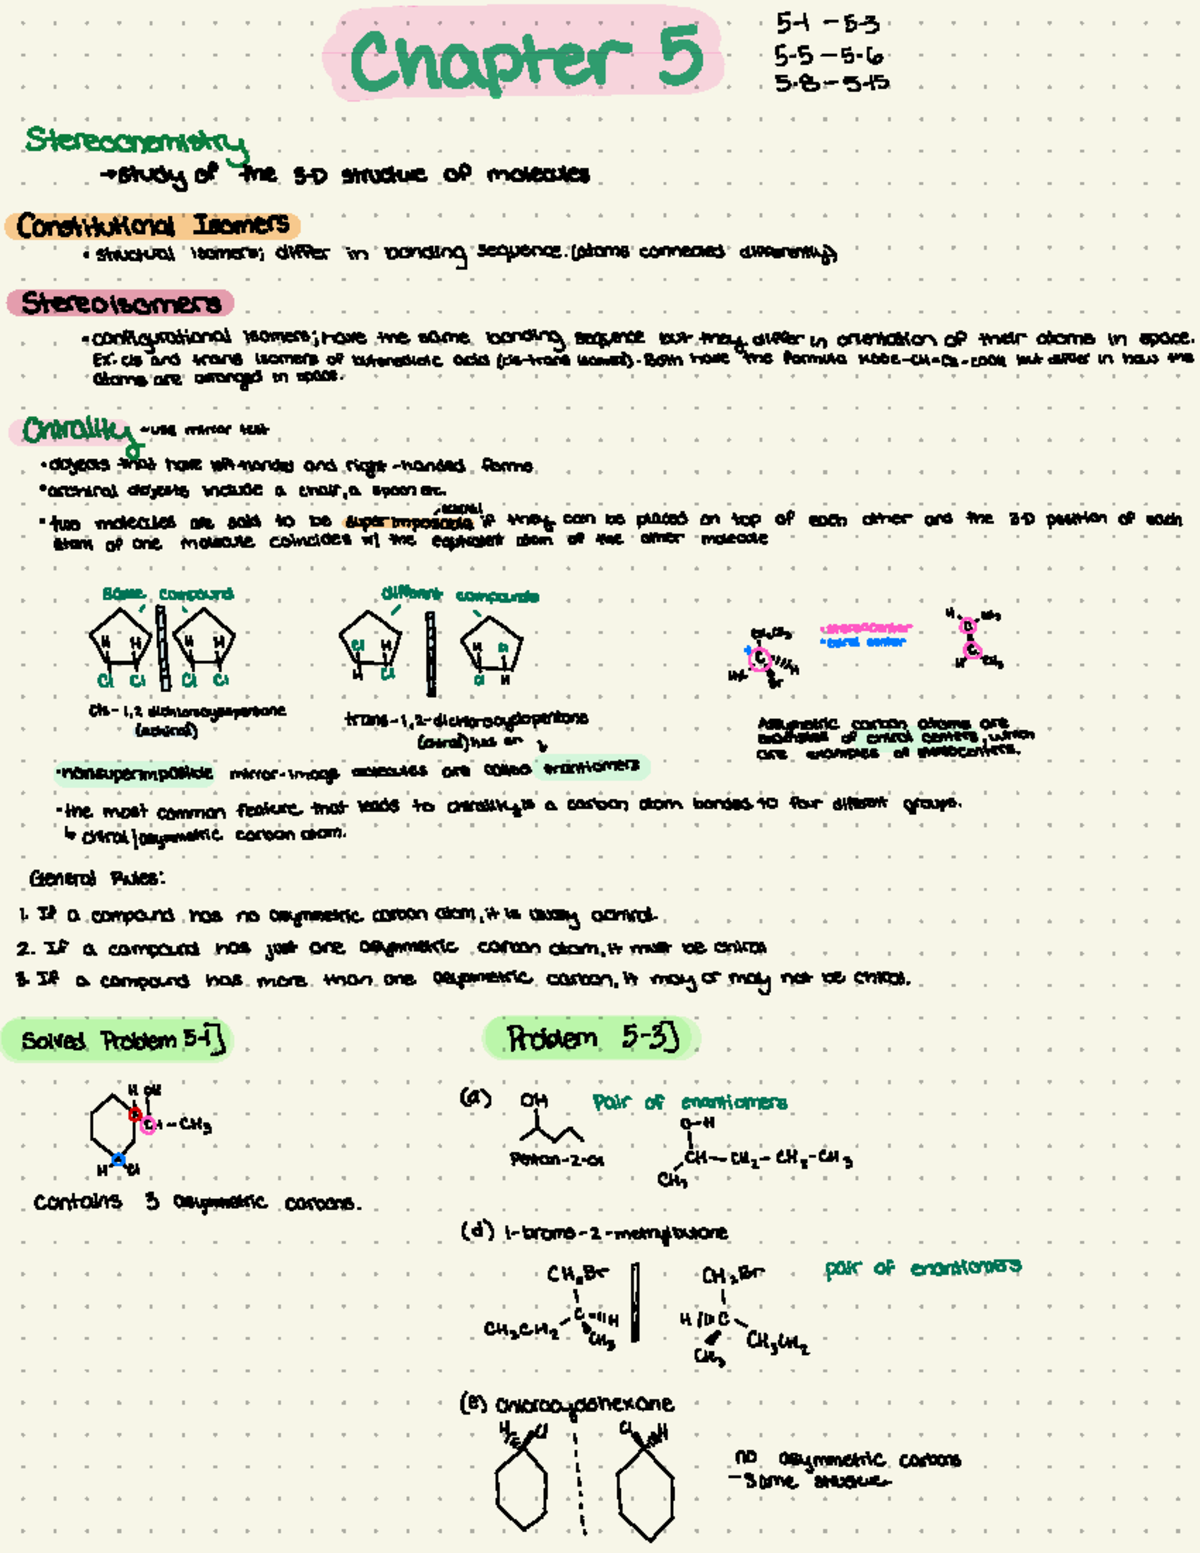 Chapter 5
5-1 - 5-3
5-5 - 5-6
5-8 - 5-15
Stereochemistry
→study of the 3-D structure of molecules
Constitutional Isomers
• structual isomers; differ in bonding sequence. (atoms connected differently)
Stereoisomers
• configurational isomers; have the same bonding sequence but they differ in orientation of their atoms in space.
Ex: cis and trans isomers of butenedioic acid (cis-trans isomer). Both have the formula HOOC-CH=CH-COOH but differ in how the
atoms are arranged in space.
Chirality ~use mirror test
• objects that have left-handed and right-handed forms
• achiral objects include a chair, a spoon etc.
• two molecules are said to be superimposable if they can be placed on top of each other and the 3-D position of each
atom of one molecule coincides w/ the equivalent atom of the other molecule
same compound
different compounds
H H H H
Cl Cl Cl Cl
Cl H
H Cl
H Cl
Cl H
CH₂CH₃
* C H
H₃C Br
•stereocenter
*chiral center
H CH₃
C
C
H CH₃
cis-1,2 dichlorocyclopentane
(achiral)
trans-1,2-dichlorocyclopentane
(chiral) has an
Asymmetric carbon atoms are
examples of chiral centers, which
are examples of stereocenters.
•nonsuperimposible mirror-image molecules are called enantiomers
•the most common feature that leads to chirality is a carbon atom bonded to four different groups.
↳ chiral/asymmetric carbon atom.
General Rules:
1. If a compound has no asymmetric carbon atom, it is achiral.
2. If a compound has just one asymmetric carbon atom, it must be chiral
3. If a compound has more than one asymmetric carbon, it may or may not be chiral.
Solved Problem 5-1]
Problem 5-3]
H OH
CH-CH₃
H Cl
contains 3 asymmetric carbons.
(a) OH Pair of enantiomers
Pentan-2-ol
O-H
CH-CH₂-CH₂-CH₃
CH₃
(d) 1-bromo-2-methylbutane
CH₂Br CH₂Br pair of enantiomers
C H H C
CH₃CH₂ CH₃ CH₃ CH₃CH₂
(e) chlorocyclohexane
H Cl Cl H
no asymmetric carbons
-same structure